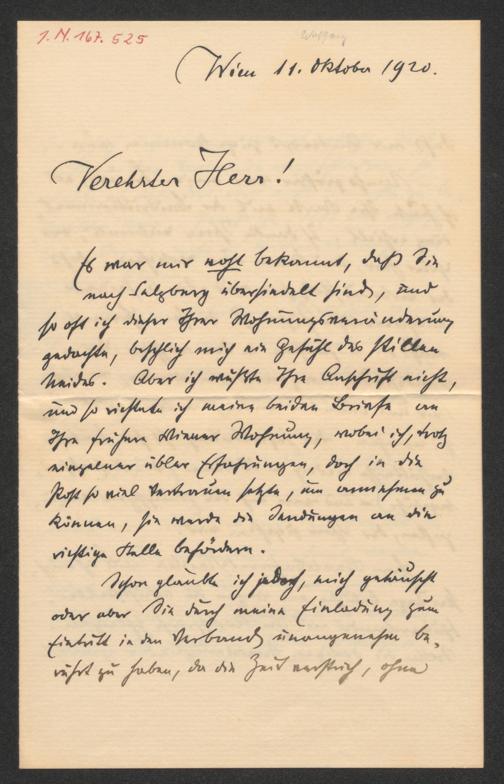 J. N. 167.525
Wien 11. Oktober 1920.
Verehrter Herr!
Es war mir wohl bekannt, daß Sie
nach Salzburg übersiedelt sind, und
so oft ich dieser Ihrer Wohnungsveränderung
gedachte, beschlich mich ein Gefühl des stillen
Neides. Aber ich wußte Ihre Anschrift nicht,
und so richtete ich meine beiden Briefe an
Ihre frühere Wiener Wohnung, wobei ich, trotz
einzelner übler Erfahrungen, doch in die
Post so viel Vertrauen setzte, um annehmen zu
können, sie werde die Sendungen an die
richtige Stelle befördern.
Schon glaubte ich jedoch, mich getäuscht
oder aber Sie durch meine Einladung zum
Eintritt in den Verband unangenehm be-
rührt zu haben, da die Zeit verstrich, ohne